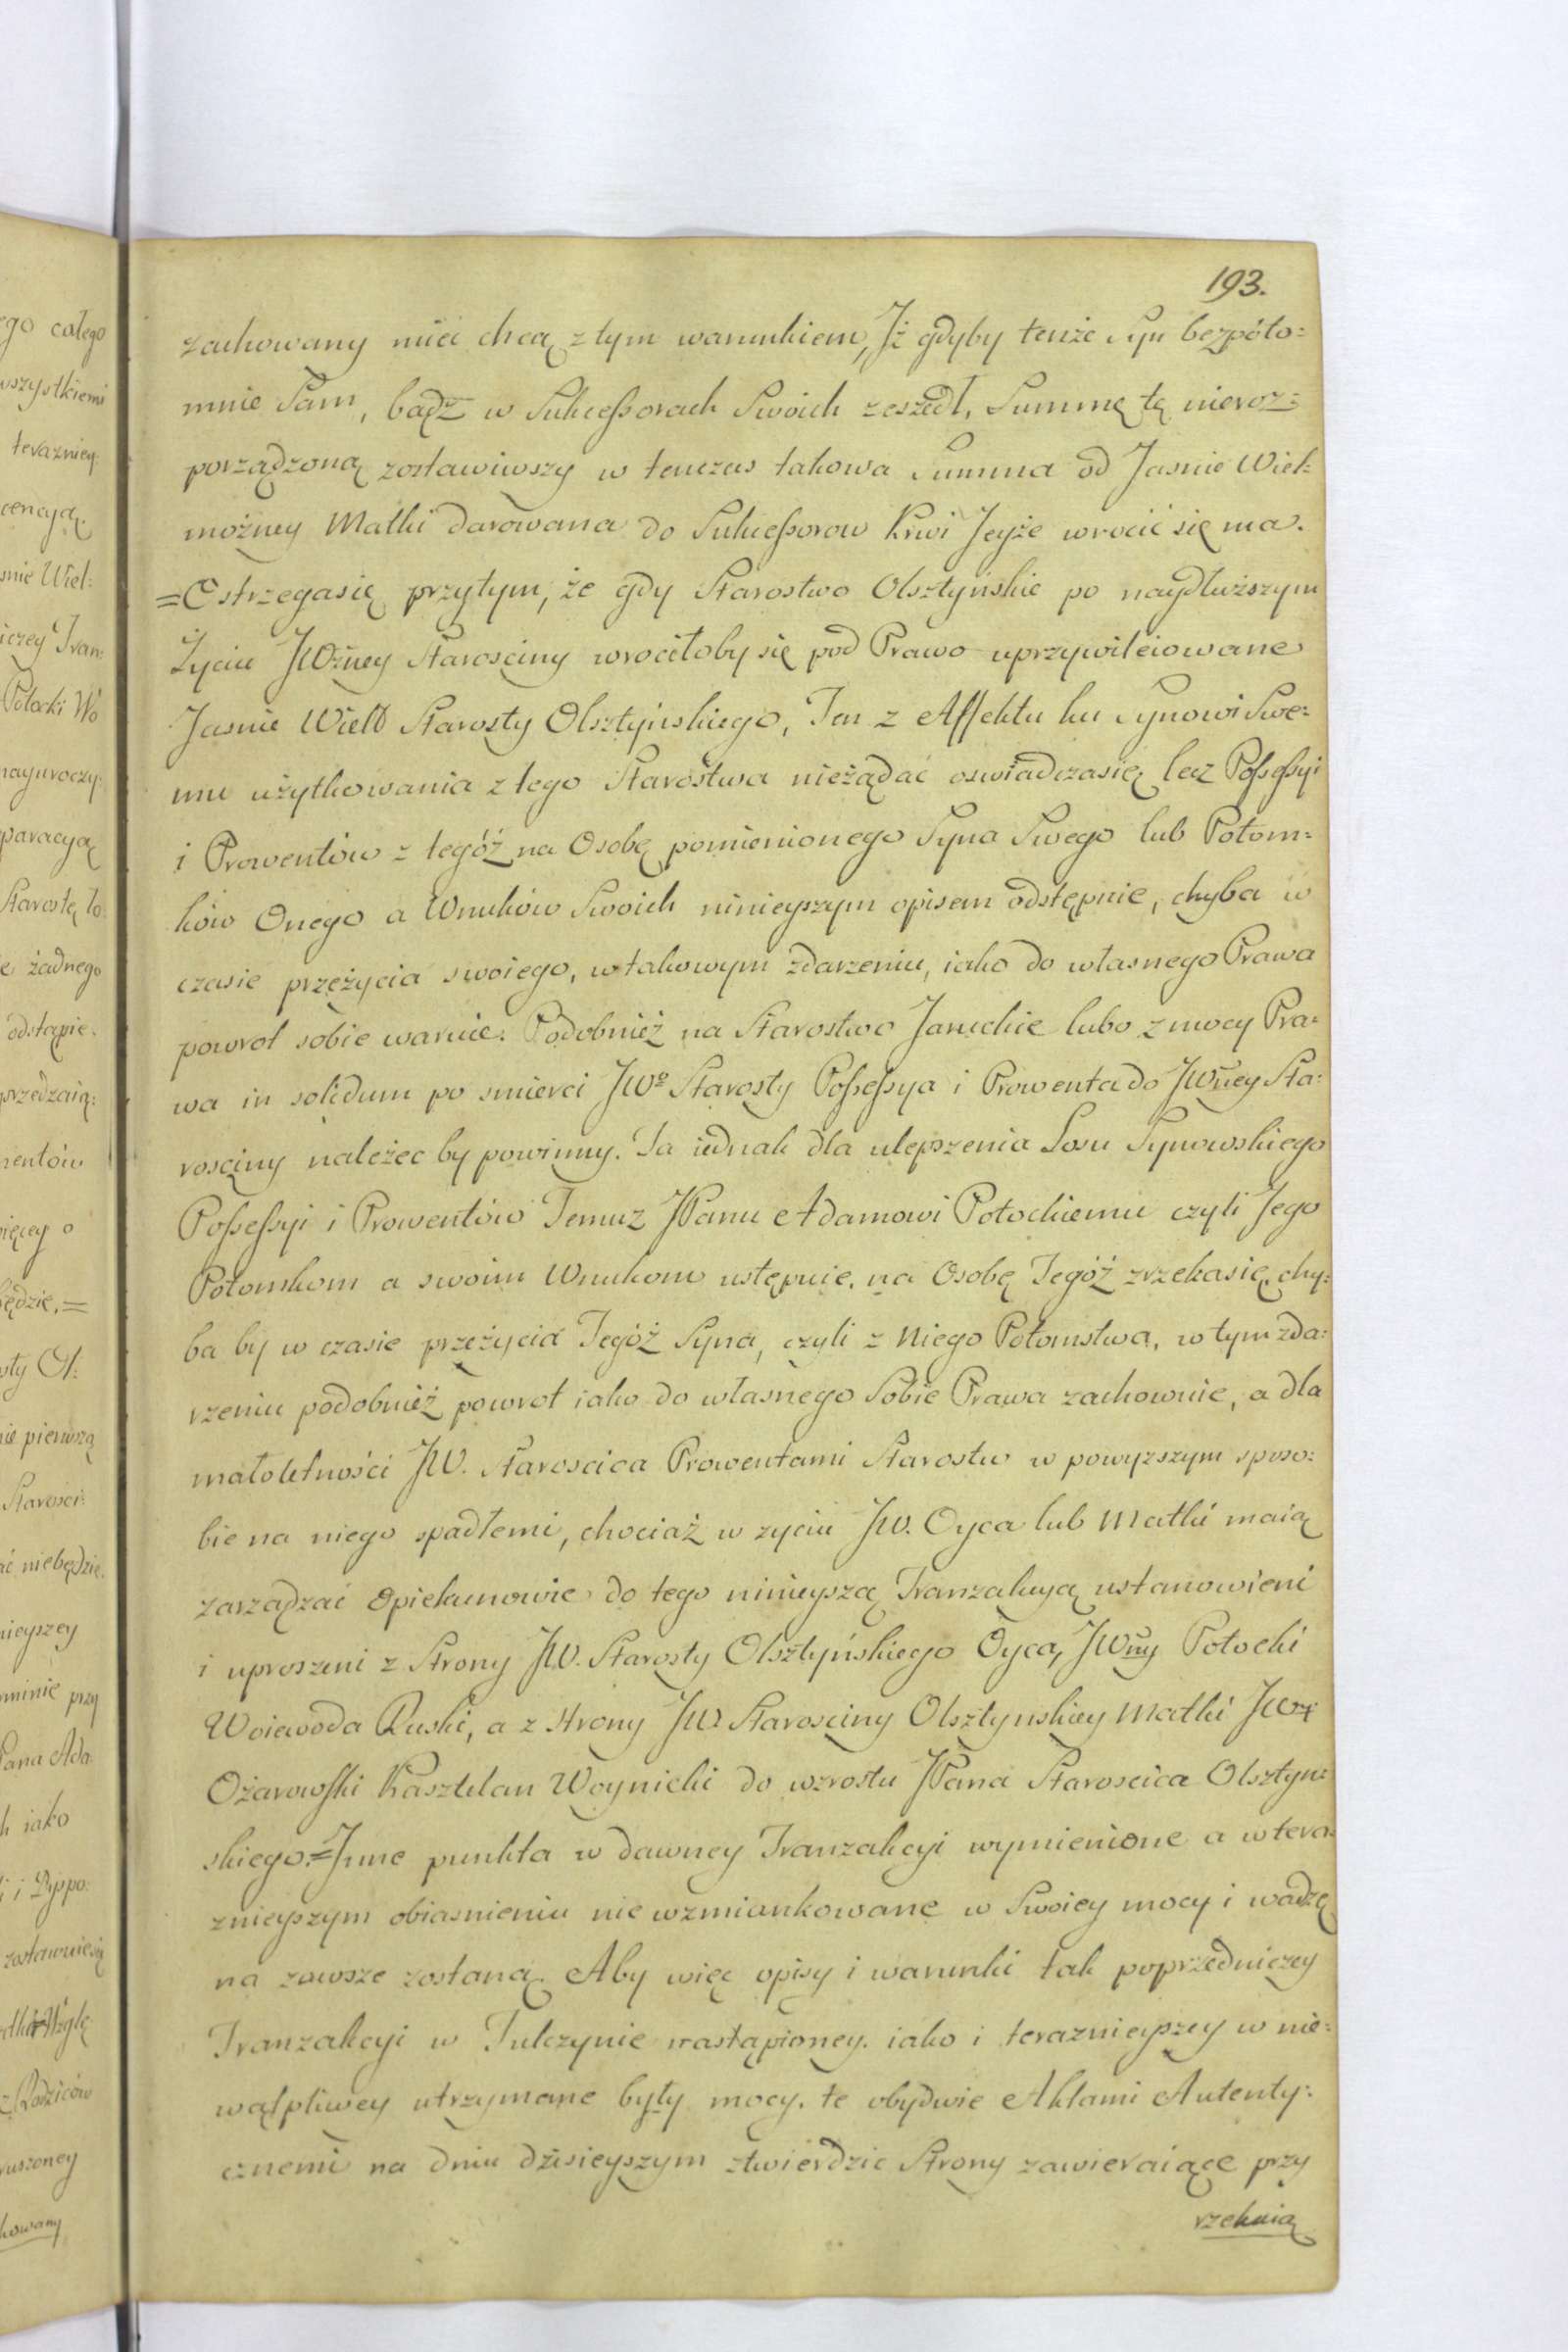 193.
zachowany mieć chcą z tym warunkiem, Jż gdyby tenże Syn bezpóto=
mnie Sam, bądź w Sukcessorach Swoich zeszedł, Summę tę nieroz=
porządzoną zostawiwszy w tenczas takowa Summa od Jasnie Wiel=
możney Matki darowana do Sukcessorow Krwi Jeyże wrocić się ma.
=Ostrzegasię przytym, że gdy Starostwo Olsztyńskie po naydłuższym
Życiu JWżney Starosciny wrociłoby się pod Prawo uprzywileiowane
Jasnie Wielo Starosty Olsztyńskiego, Ten z Affektu ku Synowi Swe=
mu użytkowania z tego Starostwa nieżądać oswiadczasię lecz Possessyi
i Prowentów z tegóż na Osobę pomienionego Syna Swego lub Potom=
ków Onego a Wnuków Swoich ninieyszym opisem odstępuie, chyba w
czasie przeżycia swoiego, w takowym zdarzeniu, iako do własnego Prawa
powrot sobie waruie. Podobnież na Starostwo Janickie lubo z mocy Pra=
wa in solidum po smierci JWo Starosty Possessya i Prowenta do JWney Sta=
rosciny należec by powinny. Ta iednak dla ulepszenia Losu Synowskiego
Possessyi i Prowentów Temuz JPanu Adamowi Potockiemu czyli Jego
Potomkom a swoim Wnukom ustępuie. na Osobę Tegóż zrzekasię, chy=
ba by w czasie przeżycia Tegóż Syna, czyli z Niego Potomstwa, w tym zda=
rzeniu podobnież powrot iako do własnego Sobie Prawa zachowuie, a dla
małoletności JW. Staroscica Prowentami Starostw w powyzszym sposo=
bie na niego spadłemi, chociaż w zyciu JW. Oyca lub Matki maią
zarządzać Opiekunowie do tego ninieyszą Tranzakcyą ustanowieni
i uproszeni z Strony JW. Starosty Olsztyńskiego Oyca, JWny Potocki
Woiewoda Ruski, a z strony JW Starosciny Olsztynskiey Matki JW
Ożarowski Kasztelan Woynicki do wzrostu JPana Staroscica Olsztyn=
skiego.=Jnne punkta w dawney Tranzakcyi wymienione a w tera=
znieyszym obiasnieniu nie wzmiankowane w Swoiey mocy i wadzę
na zawsze zostaną. Aby więc opisy i warunki tak poprzedniczey
Tranzakcyi w Tulczynie nastąpioney. iako i teraznieyszey w nie=
wątpliwey utrzymane były mocy. te obydwie Aktami Autenty=
cznemi na dniu dzisieyszym ztwierdzic Strony zawieraiące przy
rzekaią